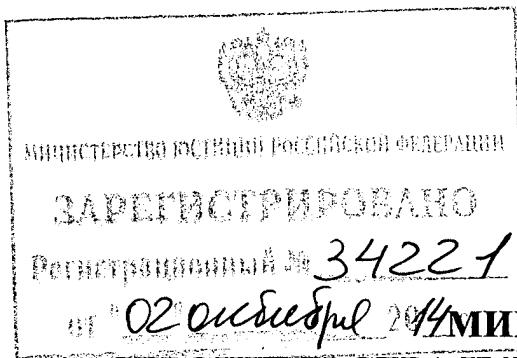 МИНИСТЕРСТВО ЮСТИЦИИ РОССИЙСКОЙ ФЕДЕРАЦИИ
ЗАРЕГИСТРИРОВАНО
Регистрационный № 34221
от "02" октября 2014
МИ